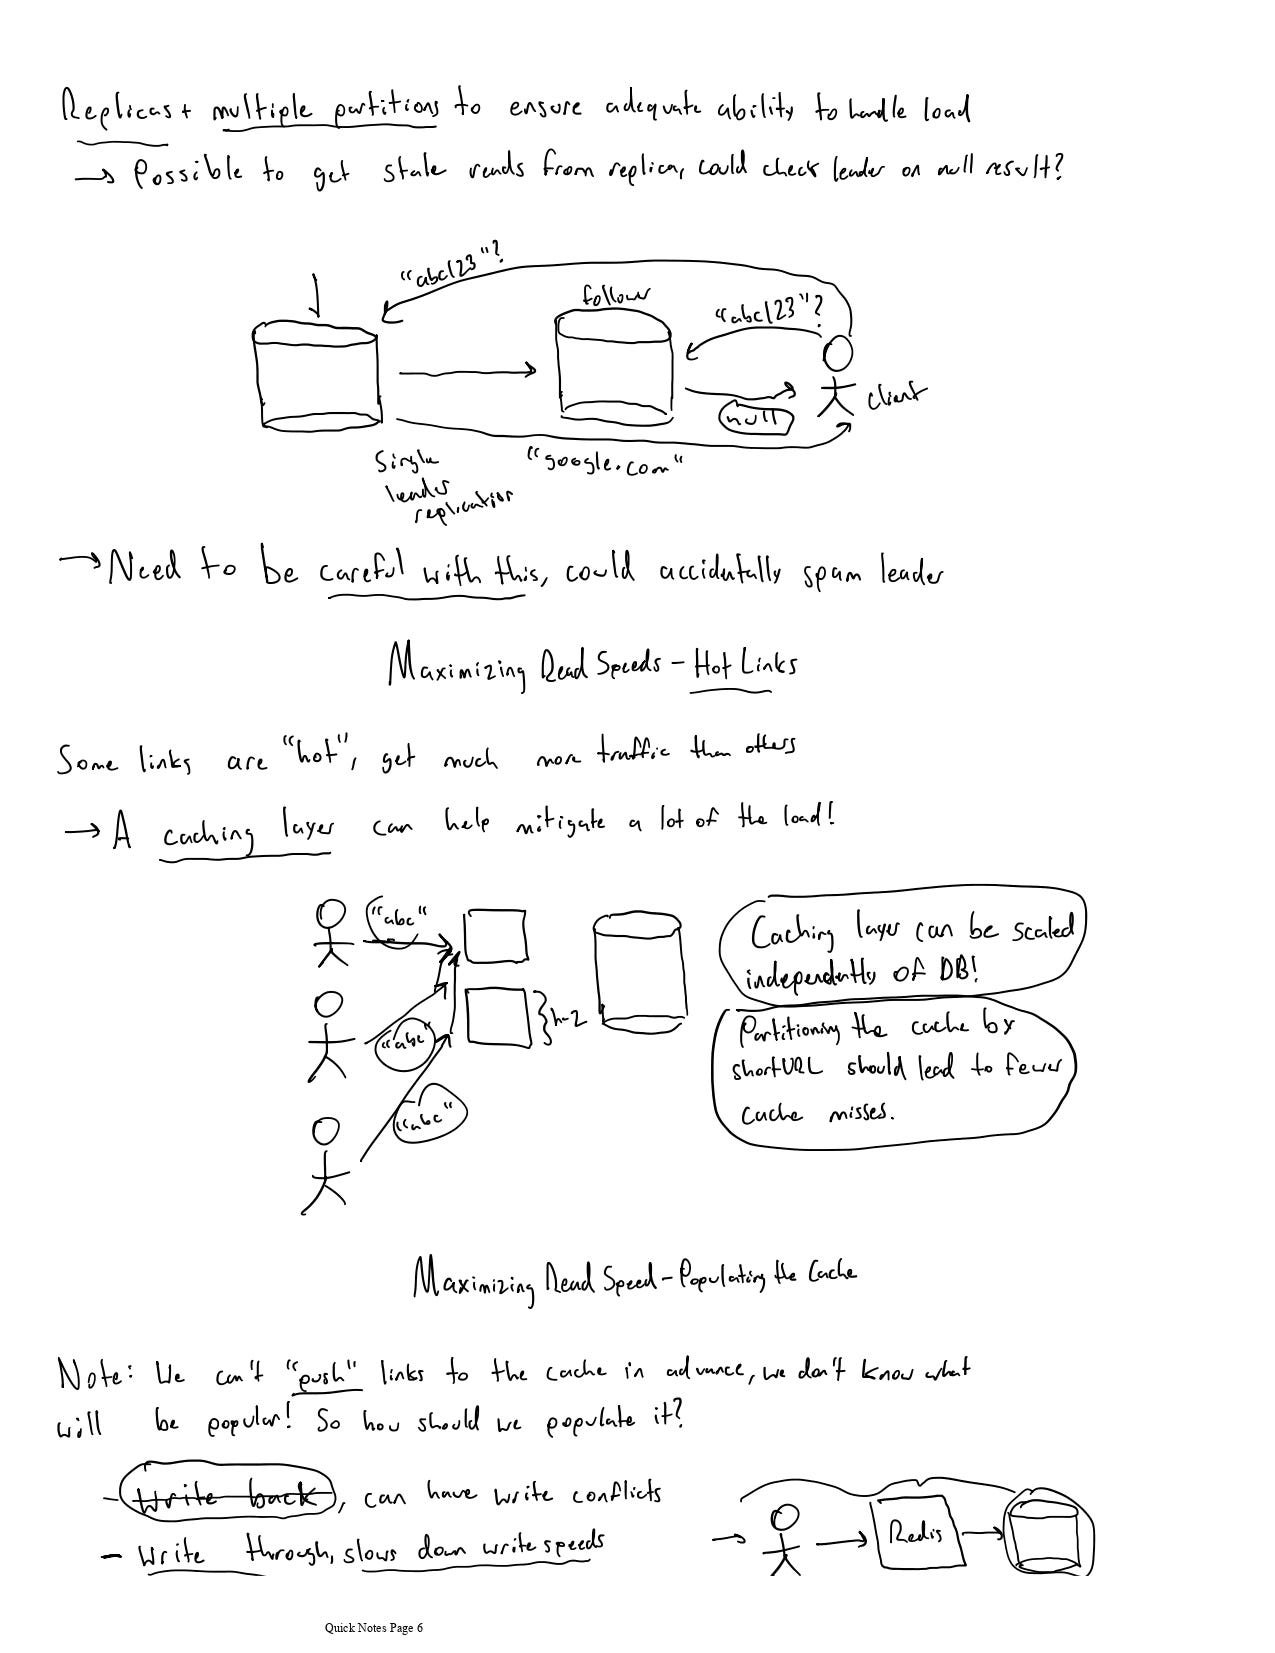 Replicas + multiple partitions to ensure adequate ability to handle load
→ Possible to get stale reads from replica, could check leader on null result?
"abc123"?
follow
"abc123"?
null
client
"google.com"
Single
leader
replication
→ Need to be careful with this, could accidentally spam leader
Maximizing Read Speeds - Hot Links
Some links are "hot", get much more traffic than others
→ A caching layer can help mitigate a lot of the load!
"abc"
"abc"
"abc"
Caching layer can be scaled
independently of DB!
Partitioning the cache by
shortURL should lead to fewer
cache misses.
Maximizing Read Speed - Populating the Cache
Note: We can't "push" links to the cache in advance, we don't know what
will be popular! So how should we populate it?
- Write back, can have write conflicts
- Write through, slows down write speeds
Redis
Quick Notes Page 6